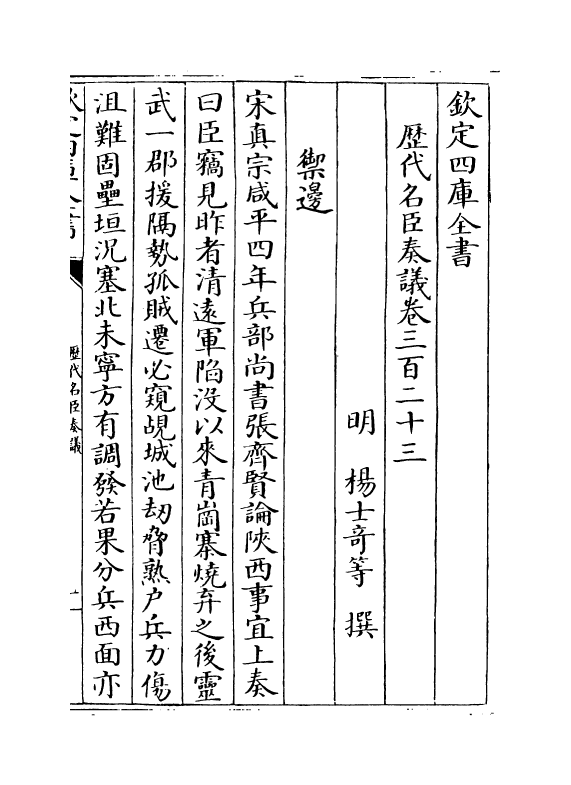 欽定四庫全書
歷代名臣奏議卷三百二十三
明　楊士奇等　撰
禦邊
宋真宗咸平四年兵部尚書張齊賢論陜西事宜上奏
曰臣竊見昨者清逺軍陷沒以來青崗寨燒弃之後靈
武一郡援隔勢孤賊遷必窺覘城池刼脅熟户兵力傷
沮難固壘垣況塞北未寧方有調發若果分兵西面亦
歷代名臣奏議